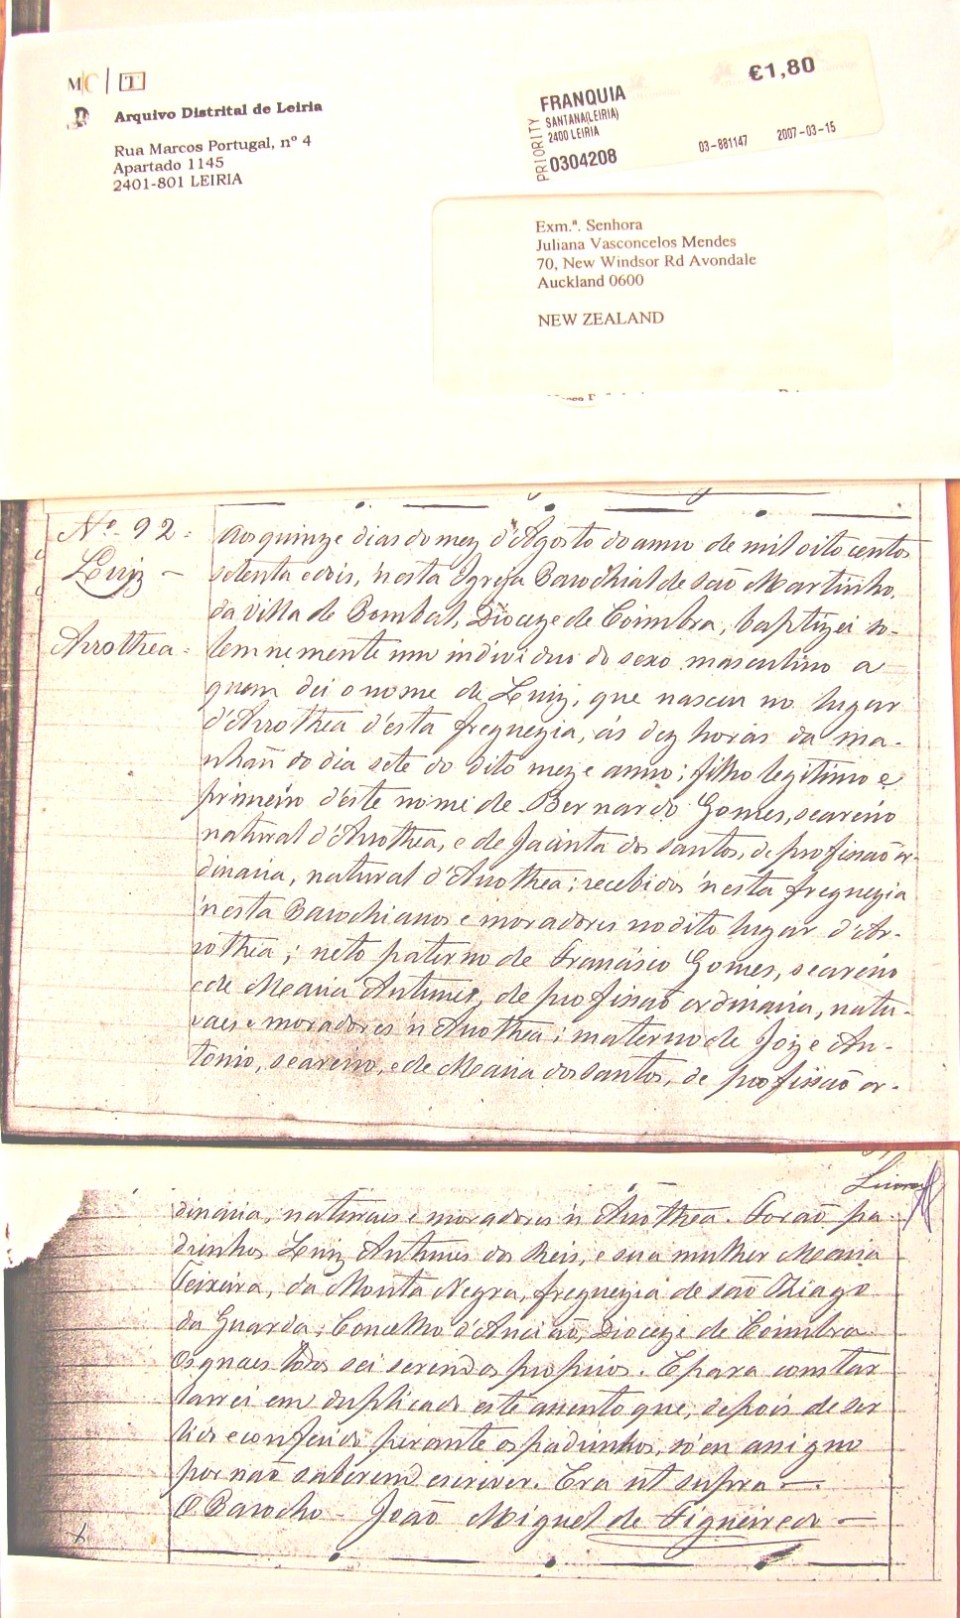 MC T
Arquivo Distrital de Leiria
Rua Marcos Portugal, nº 4
Apartado 1145
2401-801 LEIRIA
PRIORITY
FRANQUIA
SANTANA(LEIRIA)
2400 LEIRIA
0304208
€1,80
03-881147 2007-03-15
Exm.ª. Senhora
Juliana Vasconcelos Mendes
70, New Windsor Rd Avondale
Auckland 0600
NEW ZEALAND
Nº 92=
Luiz –
Arrothea=
Aos quinze dias do mez d'Agosto do anno de mil oito centos
setenta e dois, n'esta Igreja Parochial de são Martinho,
da Villa de Pombal, Dioceze de Coimbra, baptizei so-
lemnemente um individuo do sexo masculino a
quem dei o nome de Luiz, que nasceu no lugar
d'Arrothea d'esta freguezia, ás dez horas da ma-
nhañ do dia sete do dito mez e anno; filho legitimo e
primeiro d'este nome de Bernardo Gomes, seareiro
natural d'Arrothea, e de Jacinta dos santos, de profissaõ or-
dinaria, natural d'Arrothea; recebidos n'esta freguezia
n'esta Parochianos e moradores no dito lugar d'Ar-
rothea; neto paterno de Francisco Gomes, seareiro
e de Maria Antunes, de profissaõ ordinaria, natu-
raes e moradores n'Arrothea; materno de Joze An-
tonio, seareiro, e de Maria dos santos, de profissaõ or-
dinaria, naturaes e moradores n'Arrothea. Foraõ pa-
drinhos Luiz Antunes dos Reis, e sua mulher Maria
Teixeira, da Monta Negra, freguezia de saõ Thiago
da Guarda, Concelho d'Anciaõ, Dioceze de Coimbra
Os quaes todos sei serem os proprios. E para constar
lavrei em duplicado este assento que, depois de ser
lido e conferido perante os padrinhos, só eu assigno
por naõ saberem escriver. Era ut supra –.
O Parocho – Joaõ Miguel de Figueiredo –